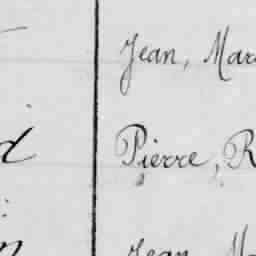 Jean, Mar
d
Pierre, R
in
Jean, M